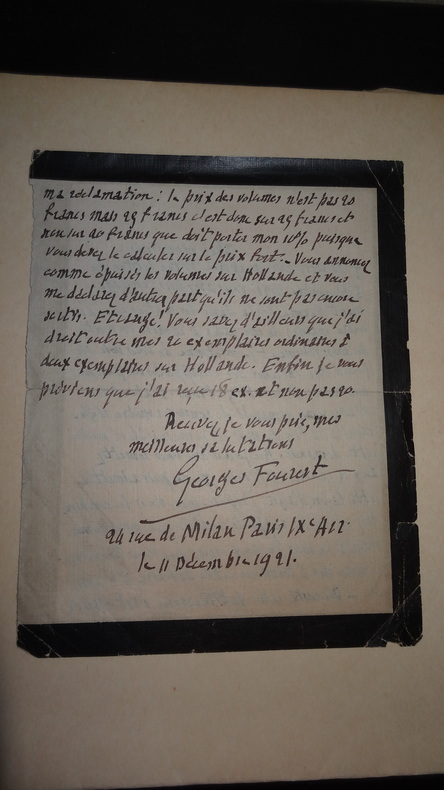 ma réclamation : le prix des volumes n'est pas 20
francs mais 25 francs c'est donc sur 25 francs et
non sur 20 francs que doit porter mon 10% puisque
vous devez le calculer sur le prix fort. - Vous annoncez
comme épuisés les volumes sur Hollande et vous
me déclarez d'autre part qu'ils ne sont pas encore
sortis. Etrange! Vous savez d'ailleurs que j'ai
droit outre mes 20 exemplaires ordinaires à
deux exemplaires sur Hollande. Enfin je vous
préviens que j'ai reçu 18 ex. et non pas 20.
Recevez, je vous prie, mes
meilleures salutations
Georges Fourest
24 rue de Milan Paris IXe Arr.
le 11 Décembre 1921.